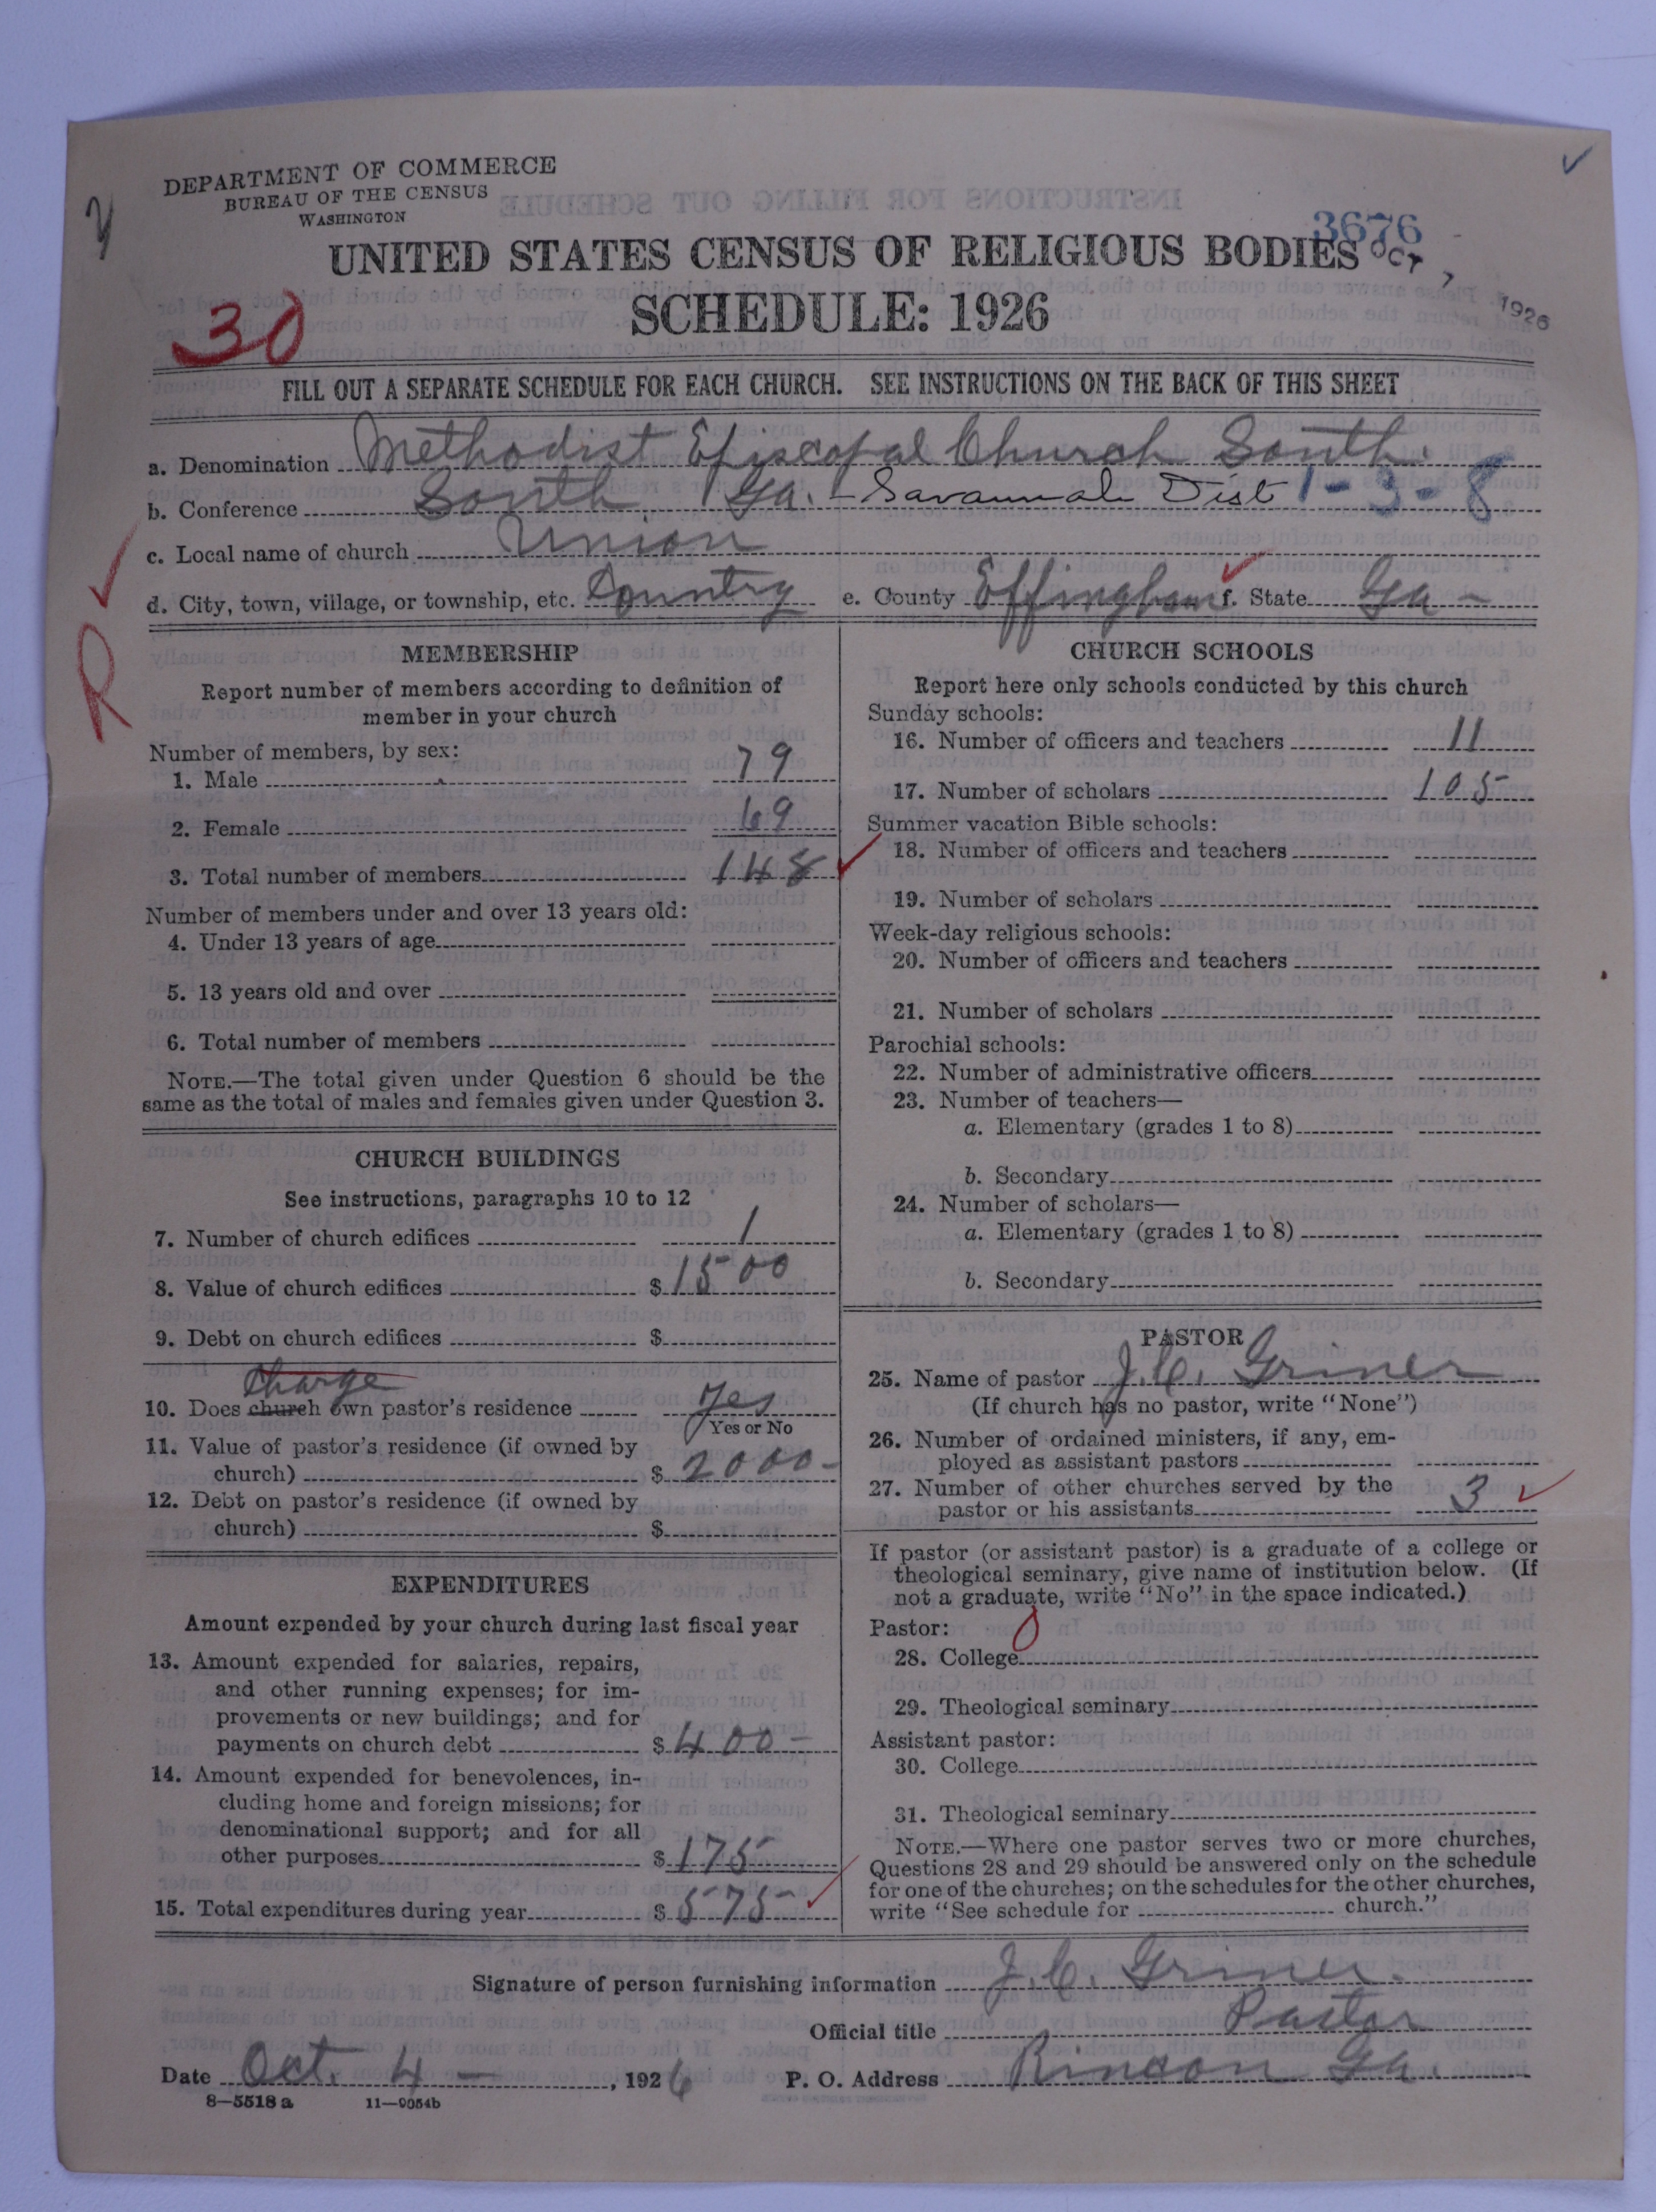 DEPARTMENT OF COMMERCE
BUREAU OF THE CENSUS
WASHINGTON
3676
OCT 7 1926
UNITED STATES CENSUS OF RELIGIOUS BODIES
SCHEDULE: 1926
30
FILL OUT A SEPARATE SCHEDULE FOR EACH CHURCH. SEE INSTRUCTIONS ON THE BACK OF THIS SHEET
a. Denomination Methodist Episcopal Church South.
b. Conference South Ga. - Savannah Dist 1-3-8
c. Local name of church Union
d. City, town, village, or township, etc. Country e. County Effingham f. State Ga -
R
MEMBERSHIP
Report number of members according to definition of
member in your church
Number of members, by sex:
1. Male 79
2. Female 69
3. Total number of members 148
Number of members under and over 13 years old:
4. Under 13 years of age
5. 13 years old and over
6. Total number of members
NOTE.—The total given under Question 6 should be the
same as the total of males and females given under Question 3.
CHURCH BUILDINGS
See instructions, paragraphs 10 to 12
7. Number of church edifices 1
8. Value of church edifices $ 1500
9. Debt on church edifices $
Charge
10. Does church own pastor's residence Yes
Yes or No
11. Value of pastor's residence (if owned by
church) $ 2000-
12. Debt on pastor's residence (if owned by
church) $
EXPENDITURES
Amount expended by your church during last fiscal year
13. Amount expended for salaries, repairs,
and other running expenses; for im-
provements or new buildings; and for
payments on church debt $ 400-
14. Amount expended for benevolences, in-
cluding home and foreign missions; for
denominational support; and for all
other purposes $ 175
15. Total expenditures during year $ 575
CHURCH SCHOOLS
Report here only schools conducted by this church
Sunday schools:
16. Number of officers and teachers 11
17. Number of scholars 105
Summer vacation Bible schools:
18. Number of officers and teachers
19. Number of scholars
Week-day religious schools:
20. Number of officers and teachers
21. Number of scholars
Parochial schools:
22. Number of administrative officers
23. Number of teachers—
a. Elementary (grades 1 to 8)
b. Secondary
24. Number of scholars—
a. Elementary (grades 1 to 8)
b. Secondary
PASTOR
25. Name of pastor J. C. Griner
(If church has no pastor, write "None")
26. Number of ordained ministers, if any, em-
ployed as assistant pastors
27. Number of other churches served by the
pastor or his assistants 3
If pastor (or assistant pastor) is a graduate of a college or
theological seminary, give name of institution below. (If
not a graduate, write "No" in the space indicated.)
Pastor:
28. College
29. Theological seminary
Assistant pastor:
30. College
31. Theological seminary
NOTE.—Where one pastor serves two or more churches,
Questions 28 and 29 should be answered only on the schedule
for one of the churches; on the schedules for the other churches,
write "See schedule for church."
Signature of person furnishing information J. C. Griner.
Official title Pastor
Date Oct. 4 - , 1926 P. O. Address Rincon Ga.
8—5518 a 11—9054b